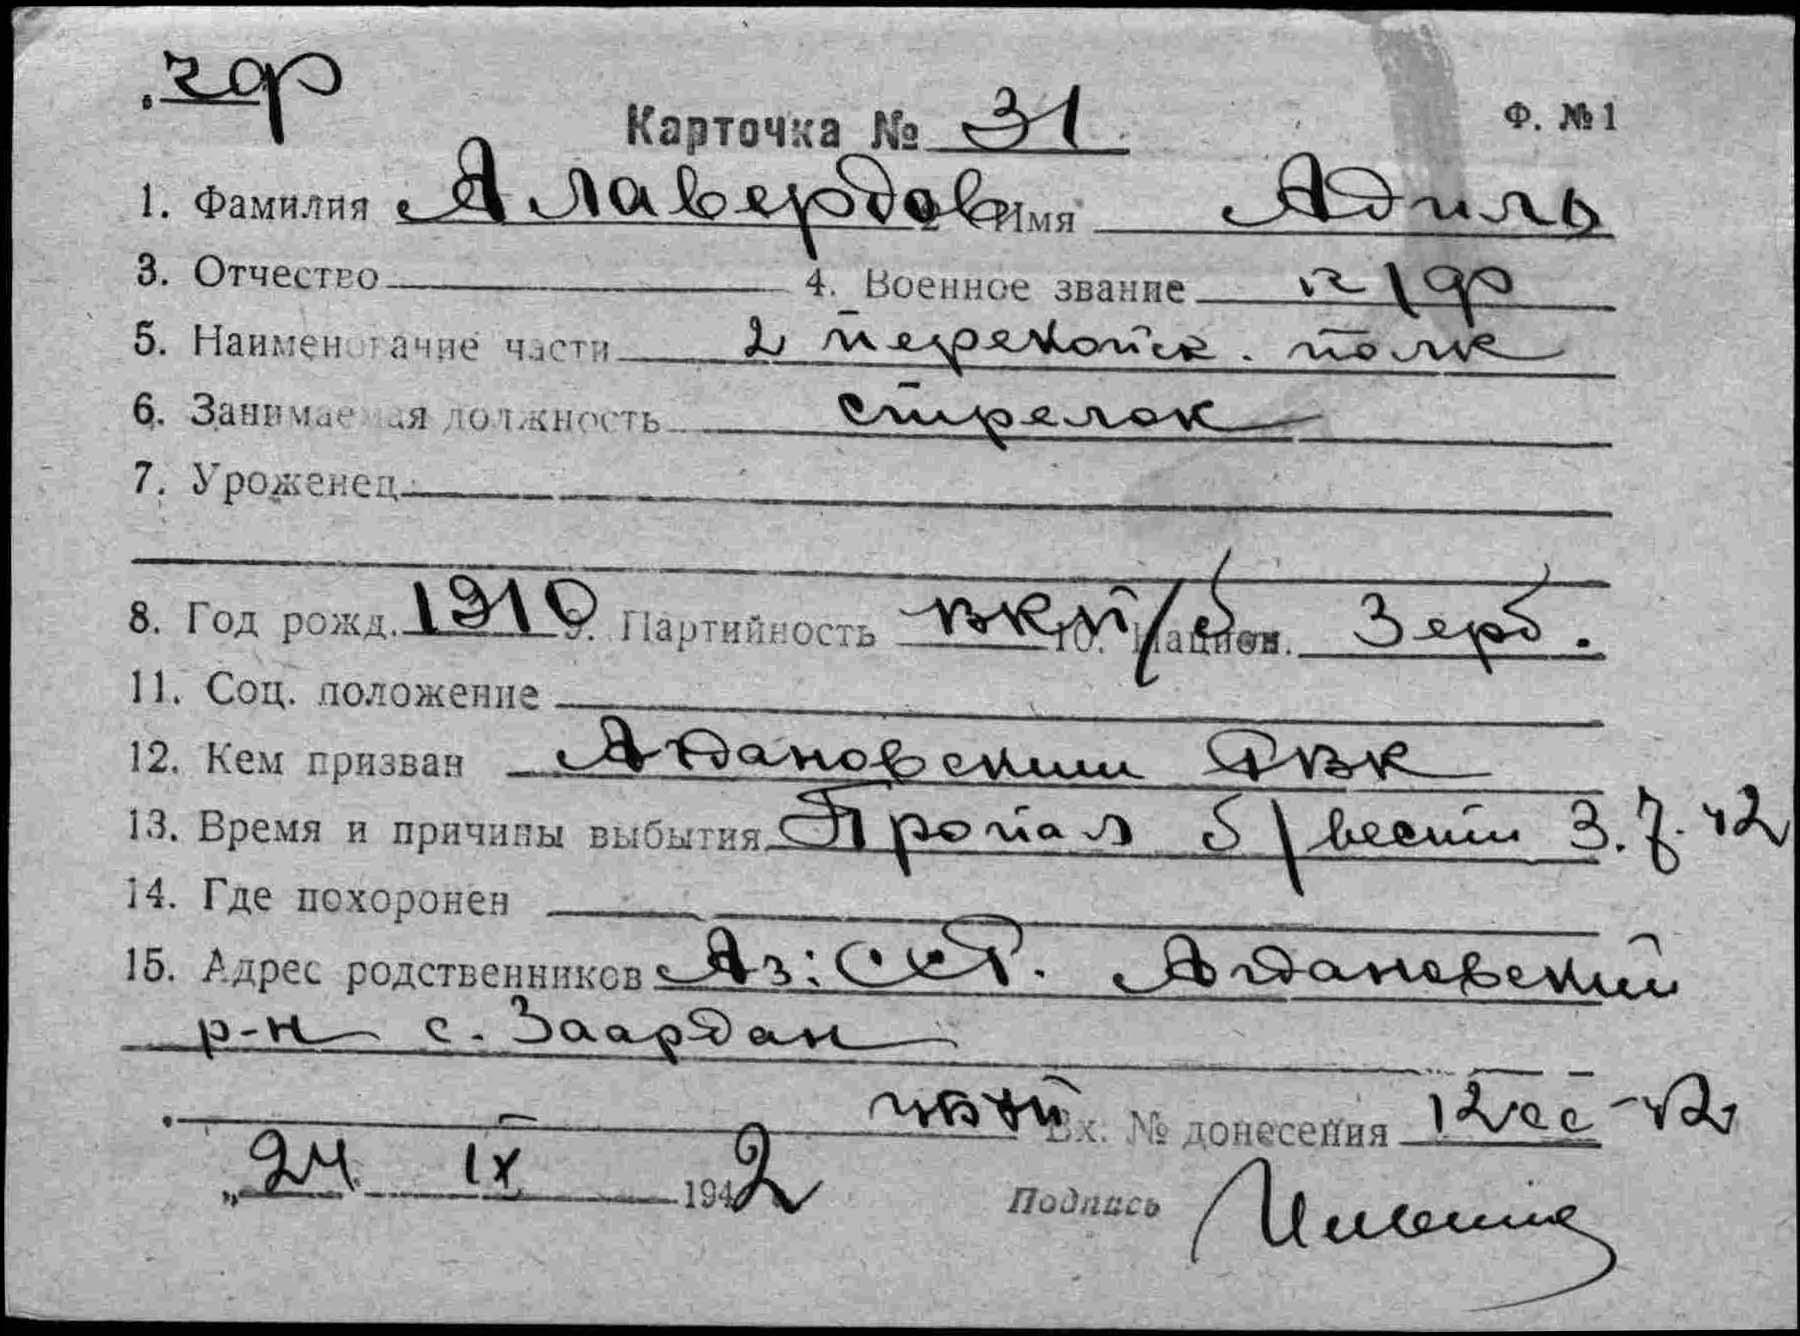 чф
Карточка № 31 Ф. №1
1. Фамилия Алавердов 2. Имя Адиль
3. Отчество 4. Военное звание к/ф
5. Наименование части 2 перекопск. полк
6. Занимаемая должность стрелок
7. Уроженец
8. Год рожд. 1910 9. Партийность ВКП/б 10. Национ. Зерб.
11. Соц. положение
12. Кем призван Ждановским РВК
13. Время и причины выбытия Пропал б/вести 3.7.42
14. Где похоронен
15. Адрес родственников Аз: ССР. Ждановский
р-н с. Заардан
Вх. № донесения
„24 IX 1942
Подпись